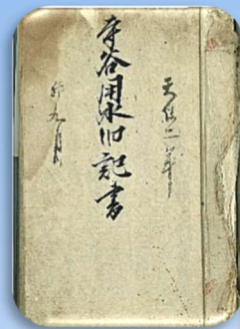 天保二年
寺谷用水旧記書
卯九月